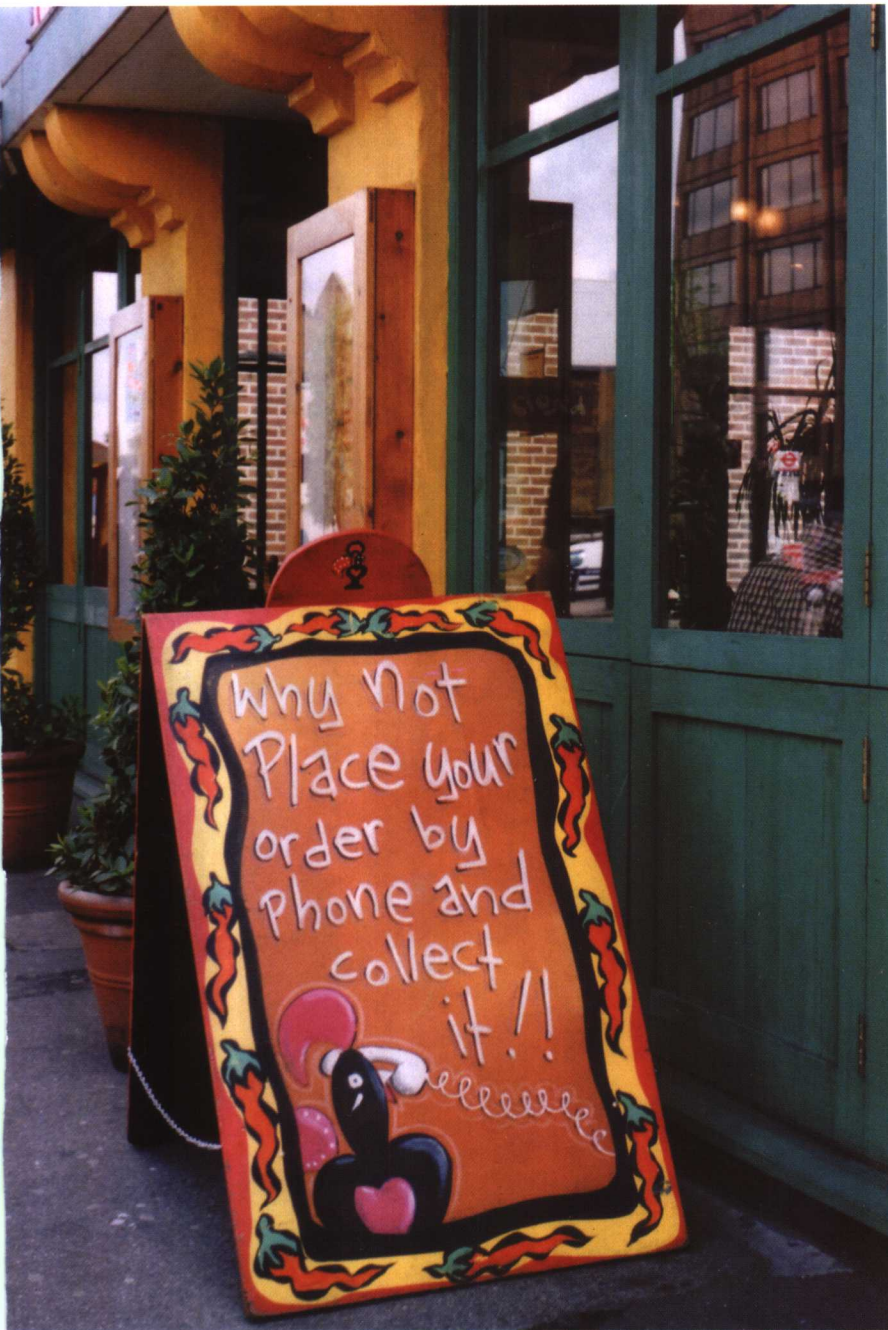 Why Not
Place your
order by
Phone and
collect
it!!